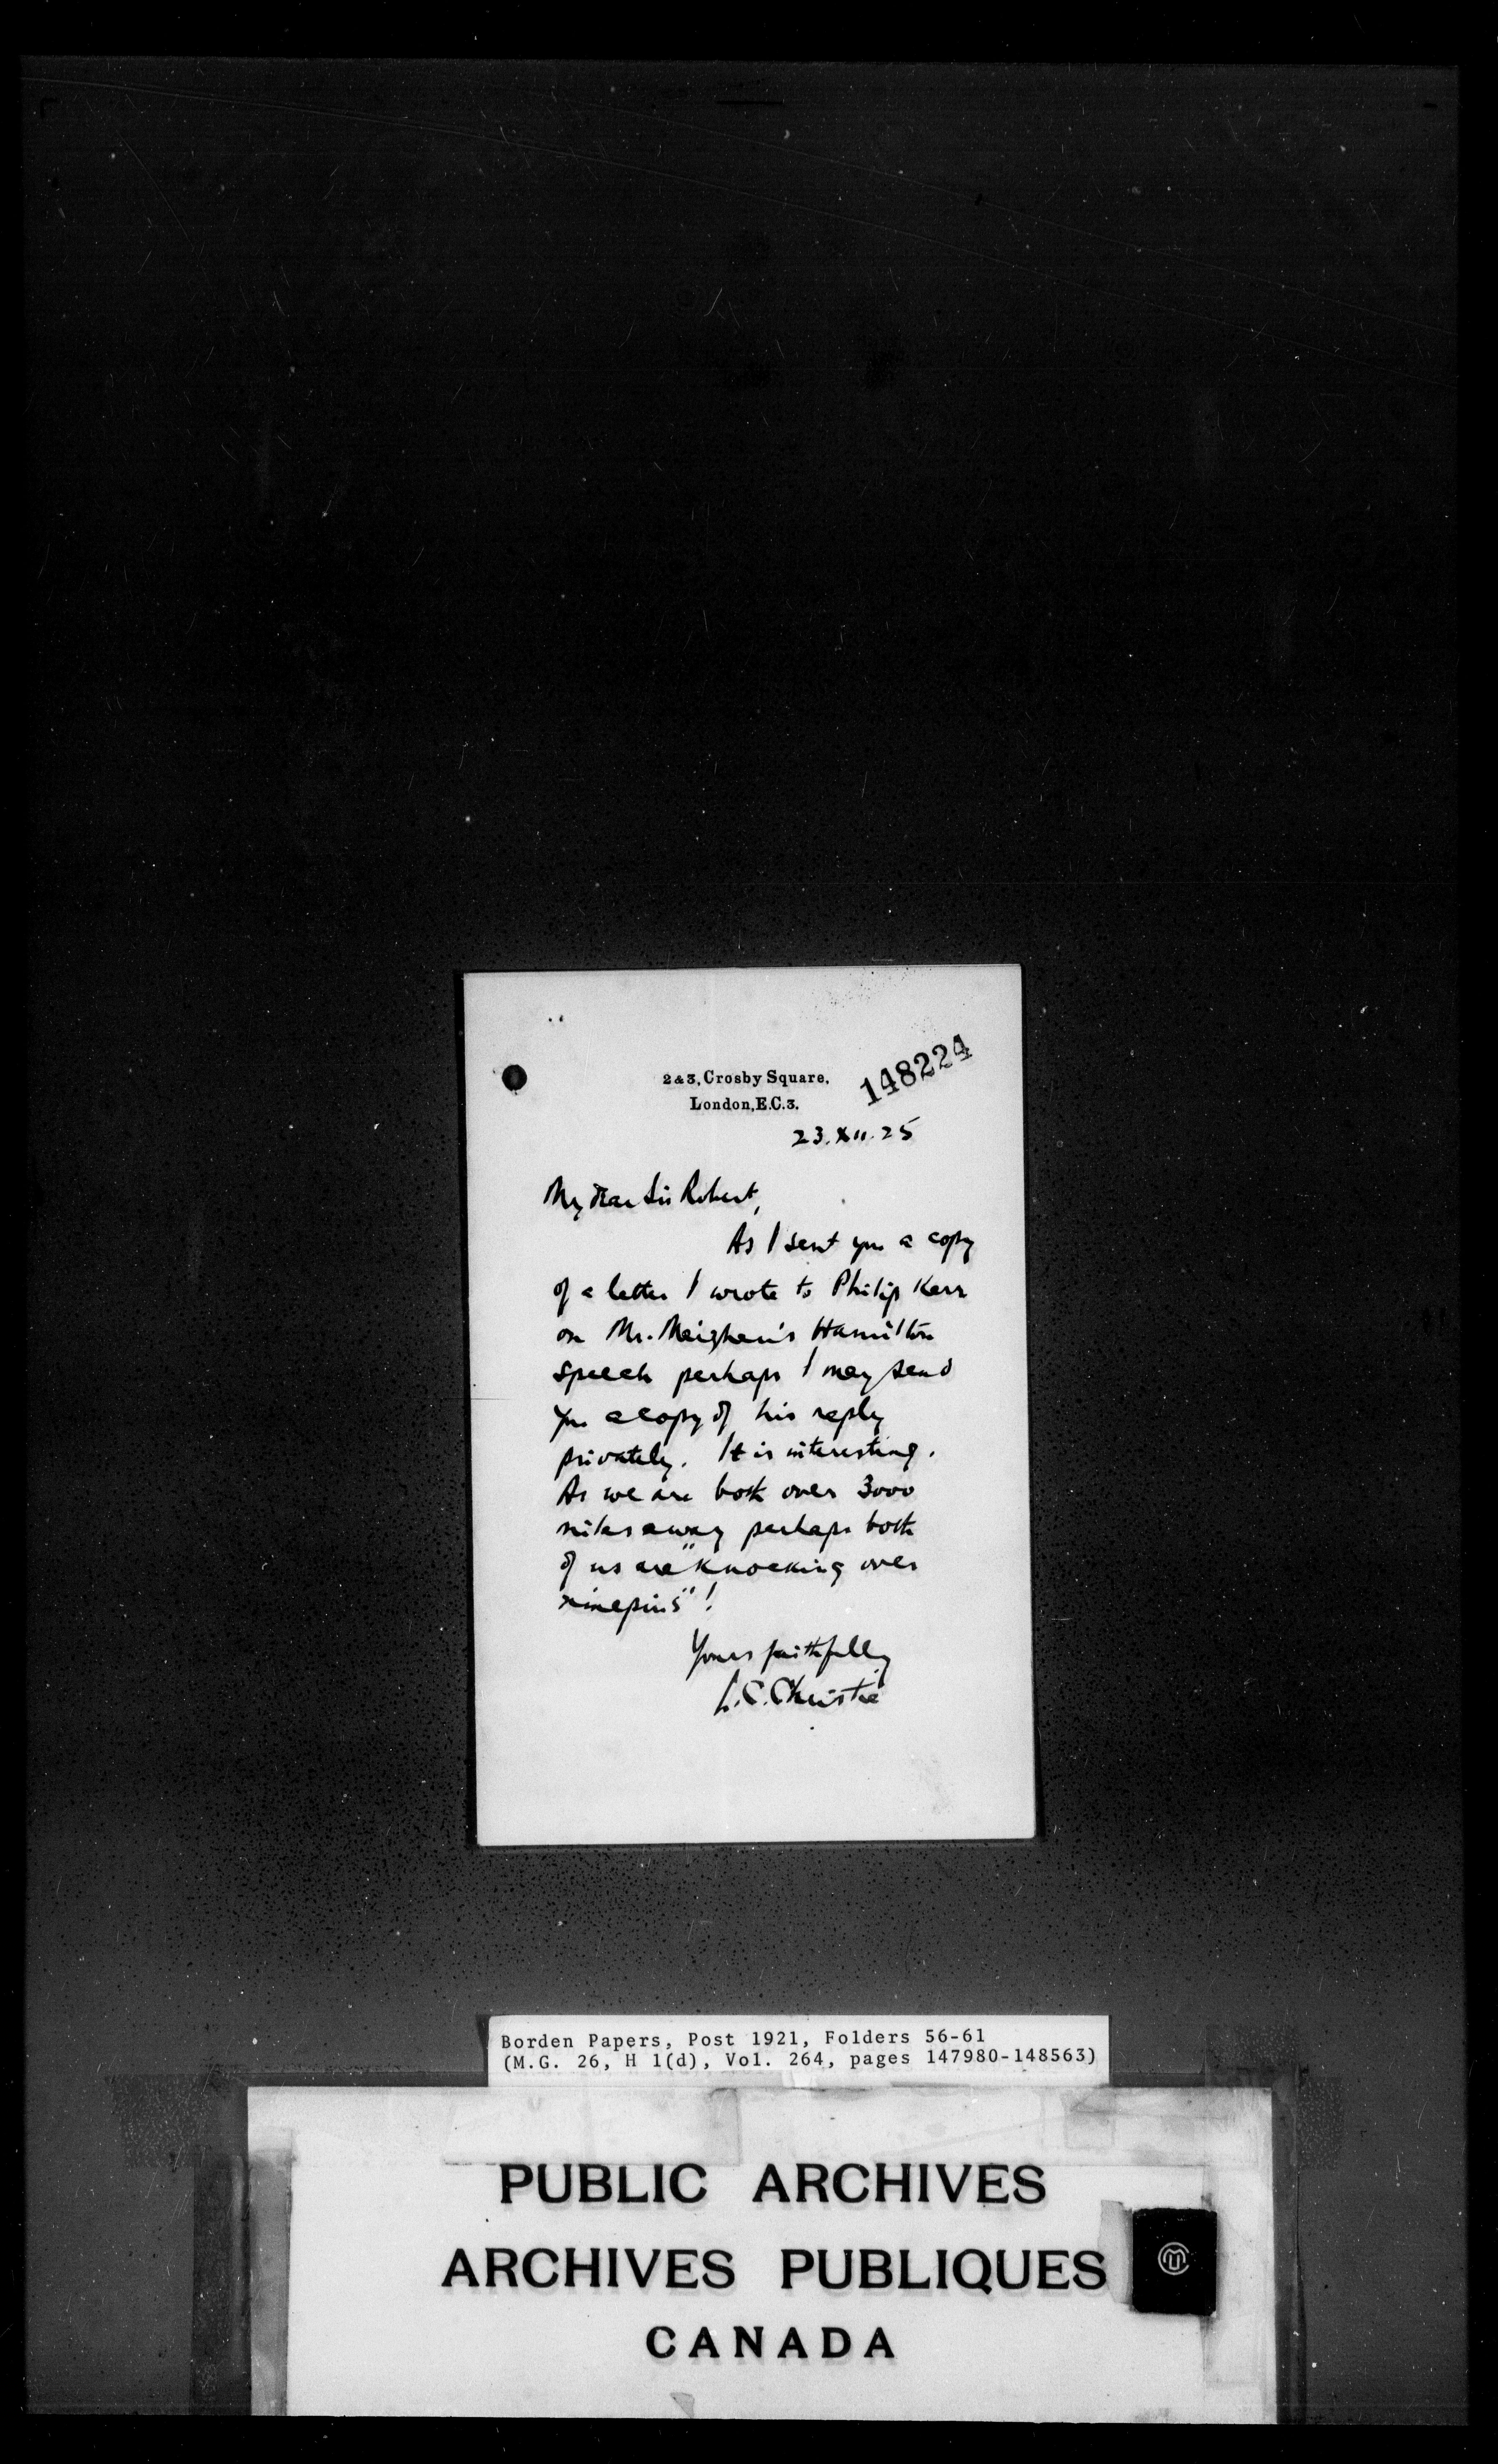 148224
2 & 3, Crosby Square,
London, E.C.3.
23.XII.25
My dear Sir Robert,
As I sent you a copy
of a letter I wrote to Philip Kerr
on Mr. Meighen's Hamilton
speech perhaps I may send
you a copy of his reply
privately. It is interesting.
As we are both over 3000
miles away perhaps both
of us are "knocking over
ninepins"!
Yours faithfully
L.C. Christie
Borden Papers, Post 1921, Folders 56-61
(M.G. 26, H 1(d), Vol. 264, pages 147980-148563)
PUBLIC ARCHIVES
ARCHIVES PUBLIQUES
CANADA